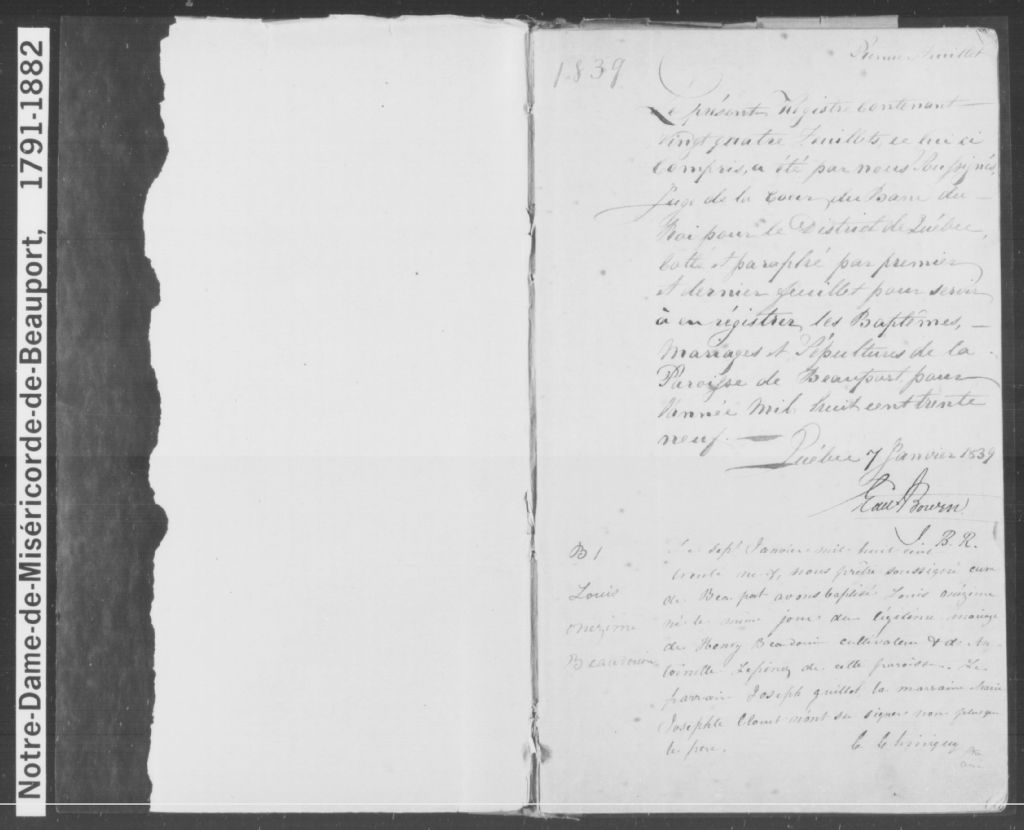 Notre-Dame-de-Miséricorde-de-Beauport, 1791-1882
1839
Premier feuillet
Le présent Régistre contenant
vingt quatre feuillets, ce lui ci
compris, a été par nous Soussignés,
Juge de la Cour du Banc du
Roi pour le District de Québec,
cotté et paraphé par premier
et dernier feuillet pour servir
à en régistrer les Baptêmes,
Mariages et Sépultures de la
Paroisse de Beauport pour
l'année mil huit cent trente
neuf.
Québec 7 Janvier 1839
Bowen
J. B. R.
B 1
Louis
onezime
Beaudouin
Le sept Janvier mil huit cent
trente neuf, nous prêtre soussigné curé
de Beauport avons baptisé Louis onézime
né le même jour du légitime mariage
de Henry Beaudouin cultivateur & de An-
toinette de cette paroisse. Le
parrain Joseph guillot la marraine Marie
Josephte Clouet n'ont su signer non plus que
le père.